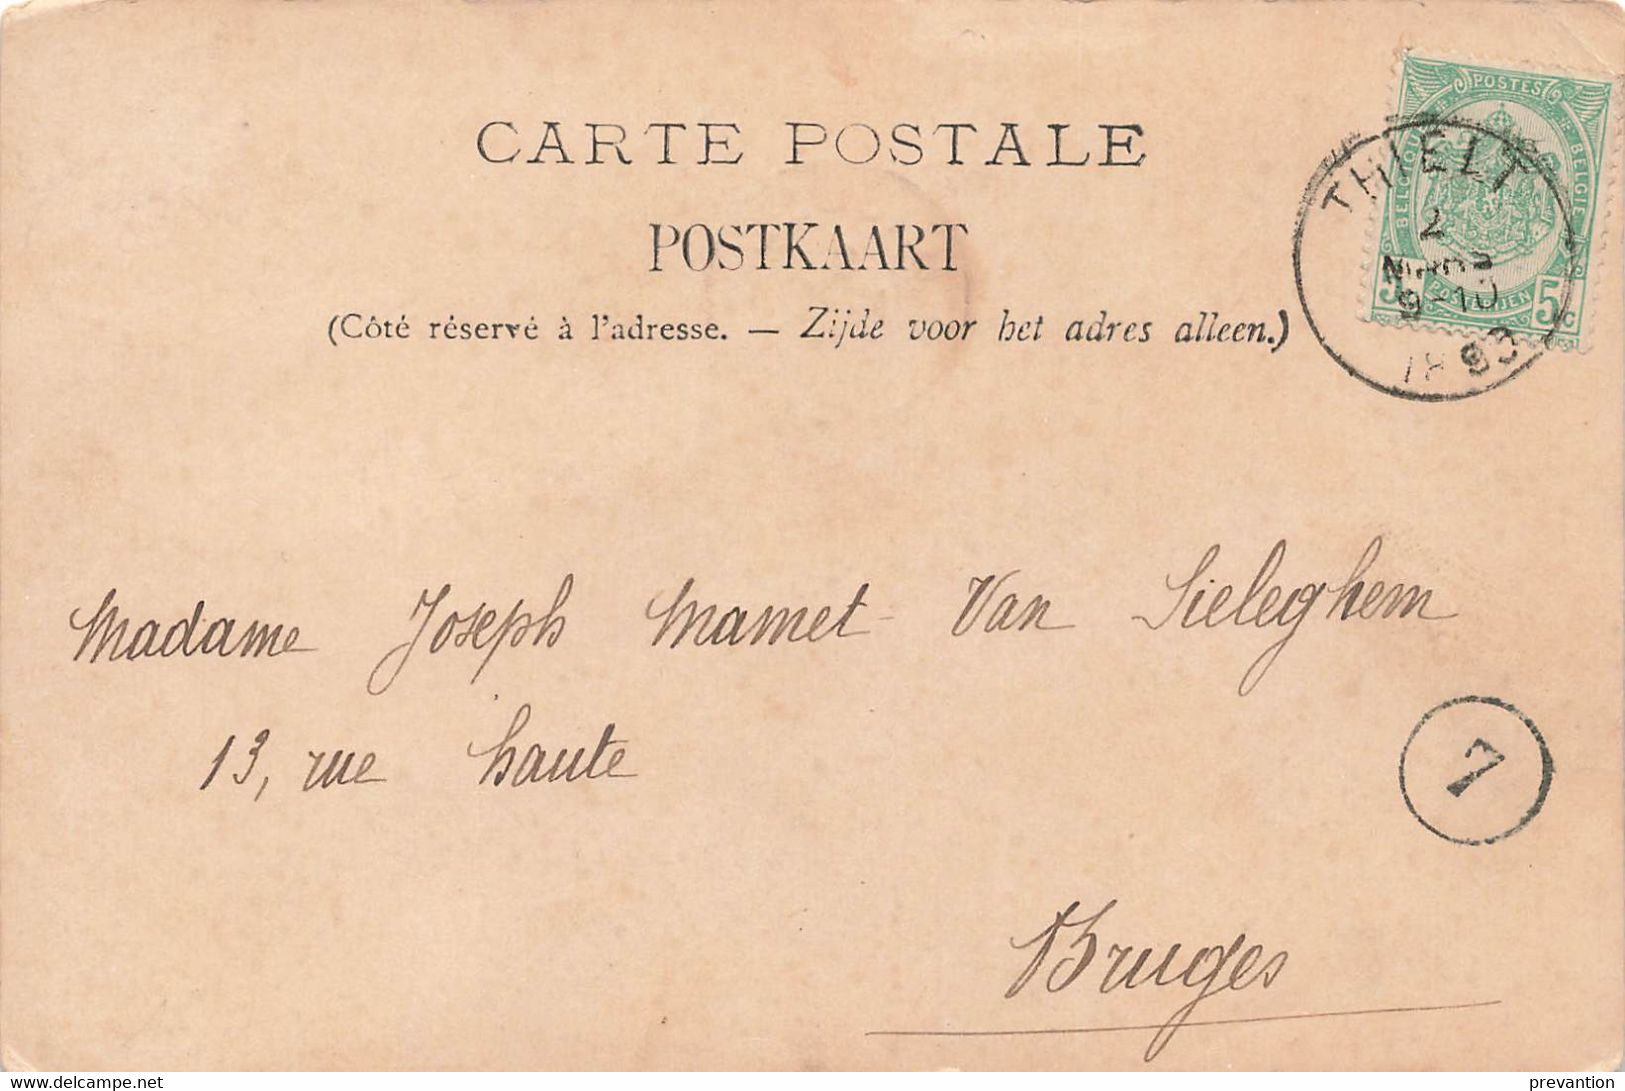 CARTE POSTALE
POSTKAART
(Côté réservé à l'adresse. — Zijde voor het adres alleen.)
POSTES
BELGIQUE BELGIE
POSTERIJEN
5 5c
THIELT
2
MARS
9-10
Madame Joseph Mamet - Van Sieleghem
13, rue haute
7
Bruges
www.delcampe.net
prevantion